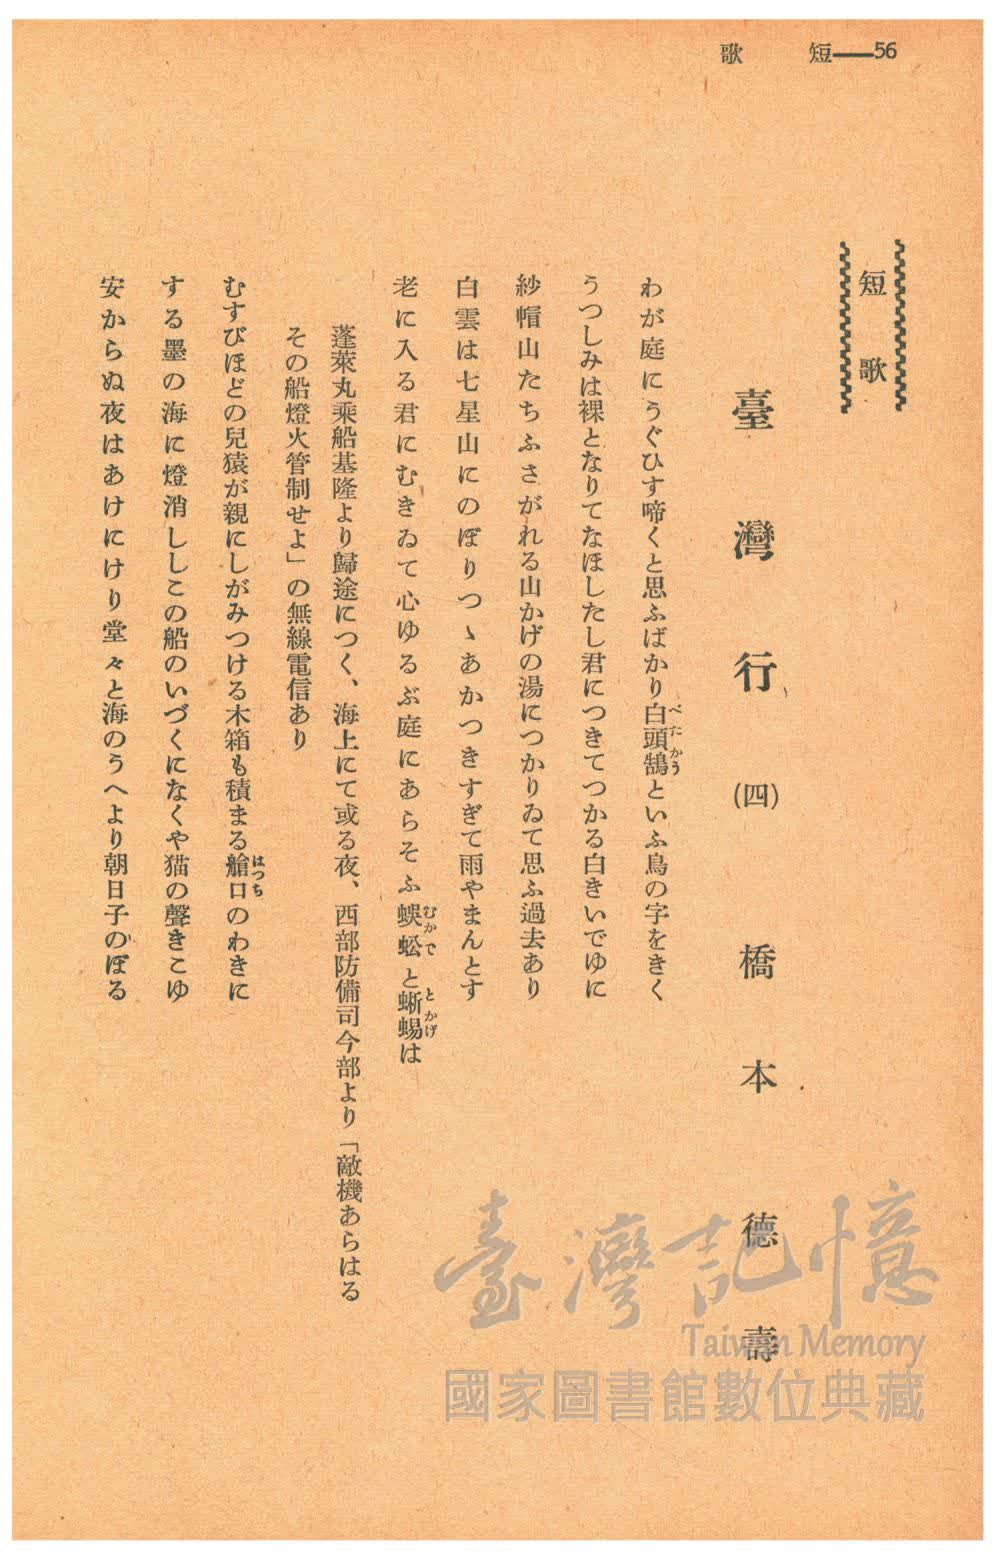 短歌――56
短歌
臺灣行 (四) 橋本德壽
わが庭にうぐひす啼くと思ふばかり白頭鵠といふ鳥の字をきく
べたかう
うつしみは裸となりてなほしたし君につきてつかる白きいでゆに
紗帽山たちふさがれる山かげの湯につかりゐて思ふ過去あり
白雲は七星山にのぼりつゝあかつきすぎて雨やまんとす
老に入る君にむきゐて心ゆるぶ庭にあらそふ蜈蚣と蜥蜴は
むかで とかげ
蓬萊丸乘船基隆より歸途につく、海上にて或る夜、西部防備司令部より「敵機あらはる
その船燈火管制せよ」の無線電信あり
むすびほどの兒猿が親にしがみつける木箱も積まる艙口のわきに
はつち
する墨の海に燈消ししこの船のいづくになくや猫の聲きこゆ
安からぬ夜はあけにけり堂々と海のうへより朝日子のぼる
臺灣記憶
Taiwan Memory
國家圖書館數位典藏